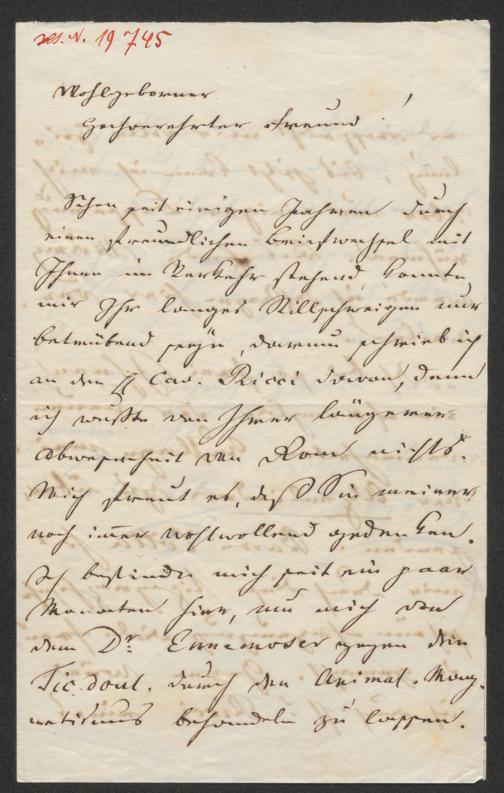 19745
Wohlgeborner
Hochverehrter Freund!
Schon seit einigen Jahren durch
einen freundlichen Briefwechsel mit
Ihnen im Verkehr stehend, konnte
mir Ihr langes Stillschweigen nur
betrübend seyn, darum schrieb ich
an den H Cav. Ricci davon, denn
ich wußte von Ihrer längeren
Abwesenheit von Rom nichts.
Mich freut es, daß Sie meiner
noch immer wohlwollend gedenken.
Ich befinde mich seit ein paar
Monaten hier, um mich von
dem Dr. Ennemoser gegen den
Tic. doul. durch den Animal. Mag-
netismus behandeln zu lassen.